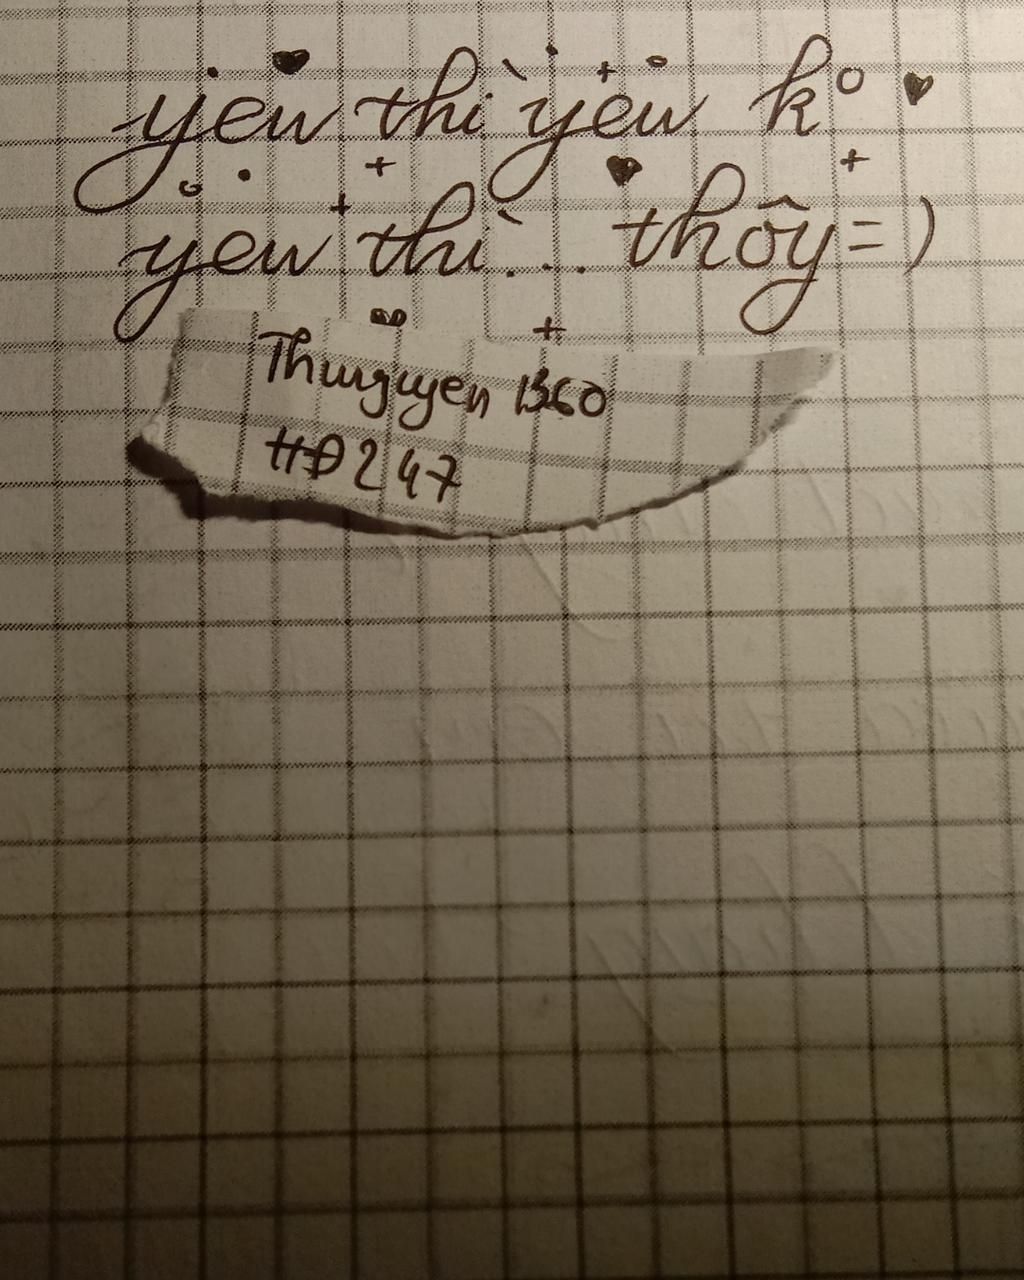 yeu thì yeu ko
yeu thì... thôy=)
Thunguyen 1360
HĐ247